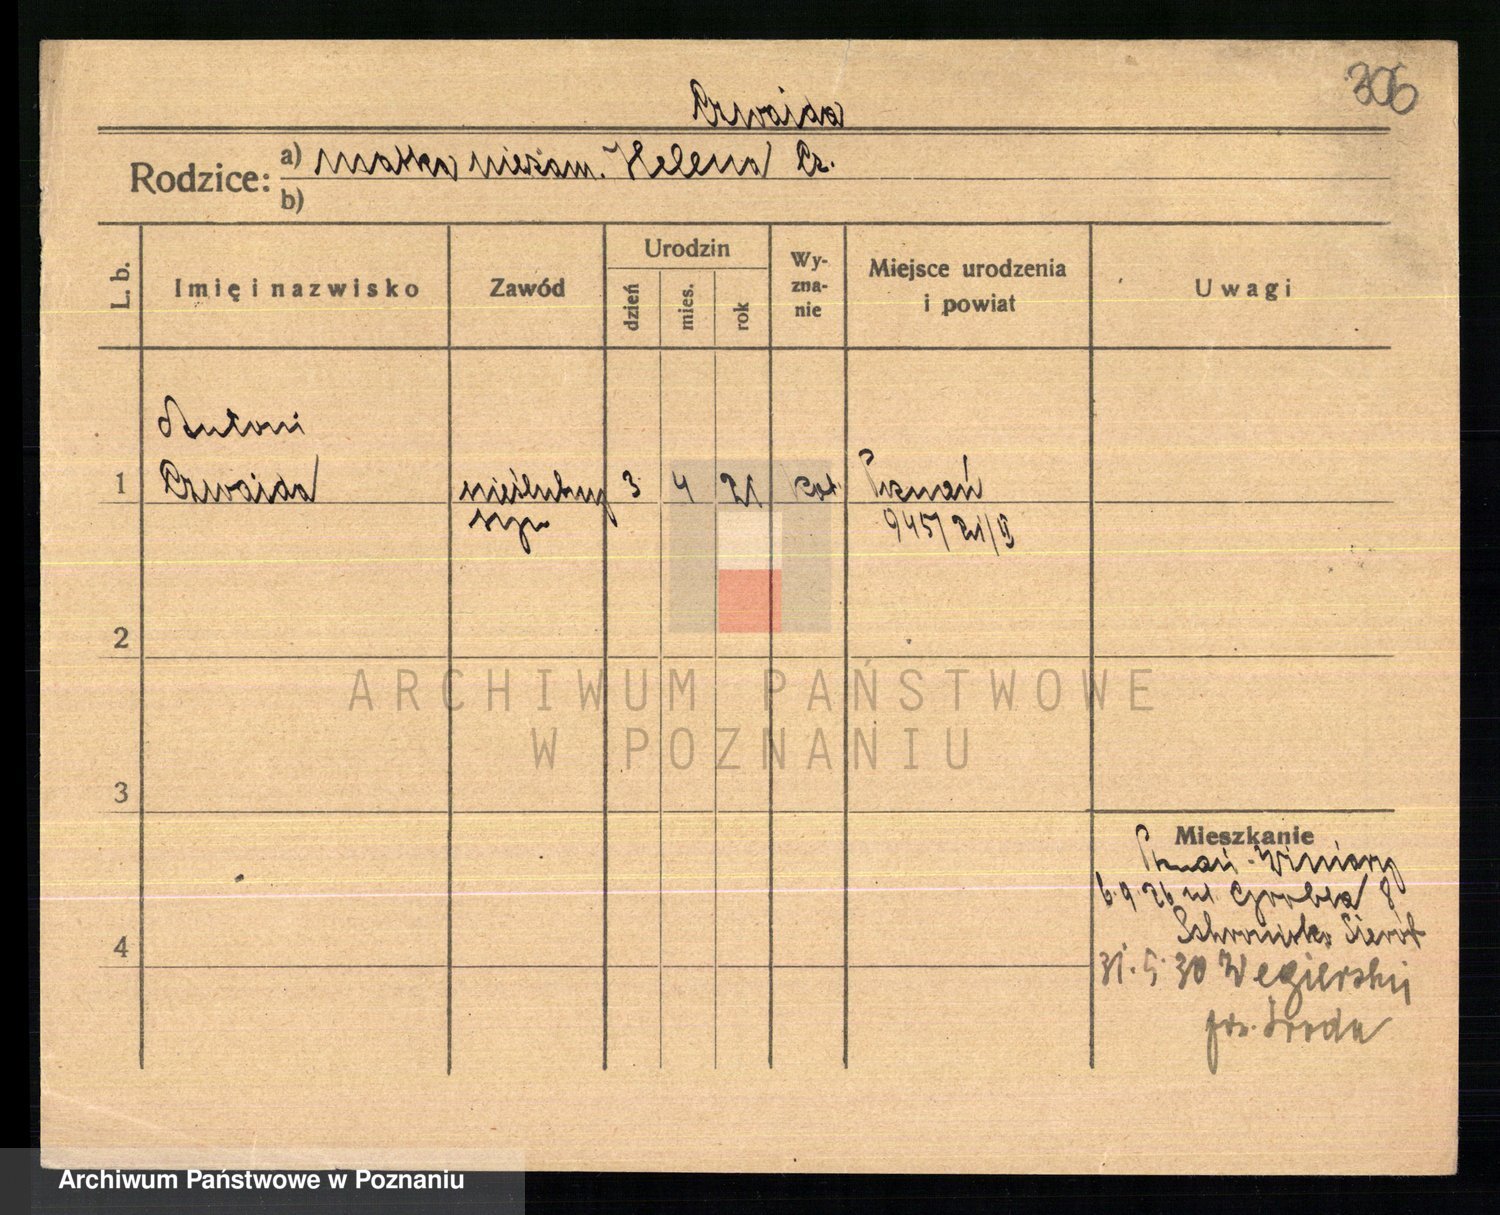 306
Czwaida
Rodzice: a) matka niezam. Helena Cz.
b)
L. b. Imię i nazwisko Zawód Urodzin dzień mies. rok Wy-zna-nie Miejsce urodzenia i powiat Uwagi
Antoni
1 Czwaida nieślubny 3 4 21 kat Poznań
syn 945/21/
2
ARCHIWUM PAŃSTWOWE
W POZNANIU
3
Mieszkanie
Poznań-Winiary
6.9.26 ul. Grobla 8
Schronisko Sierót
4
31.5.30 Węgierskie
pow. Środa
Archiwum Państwowe w Poznaniu